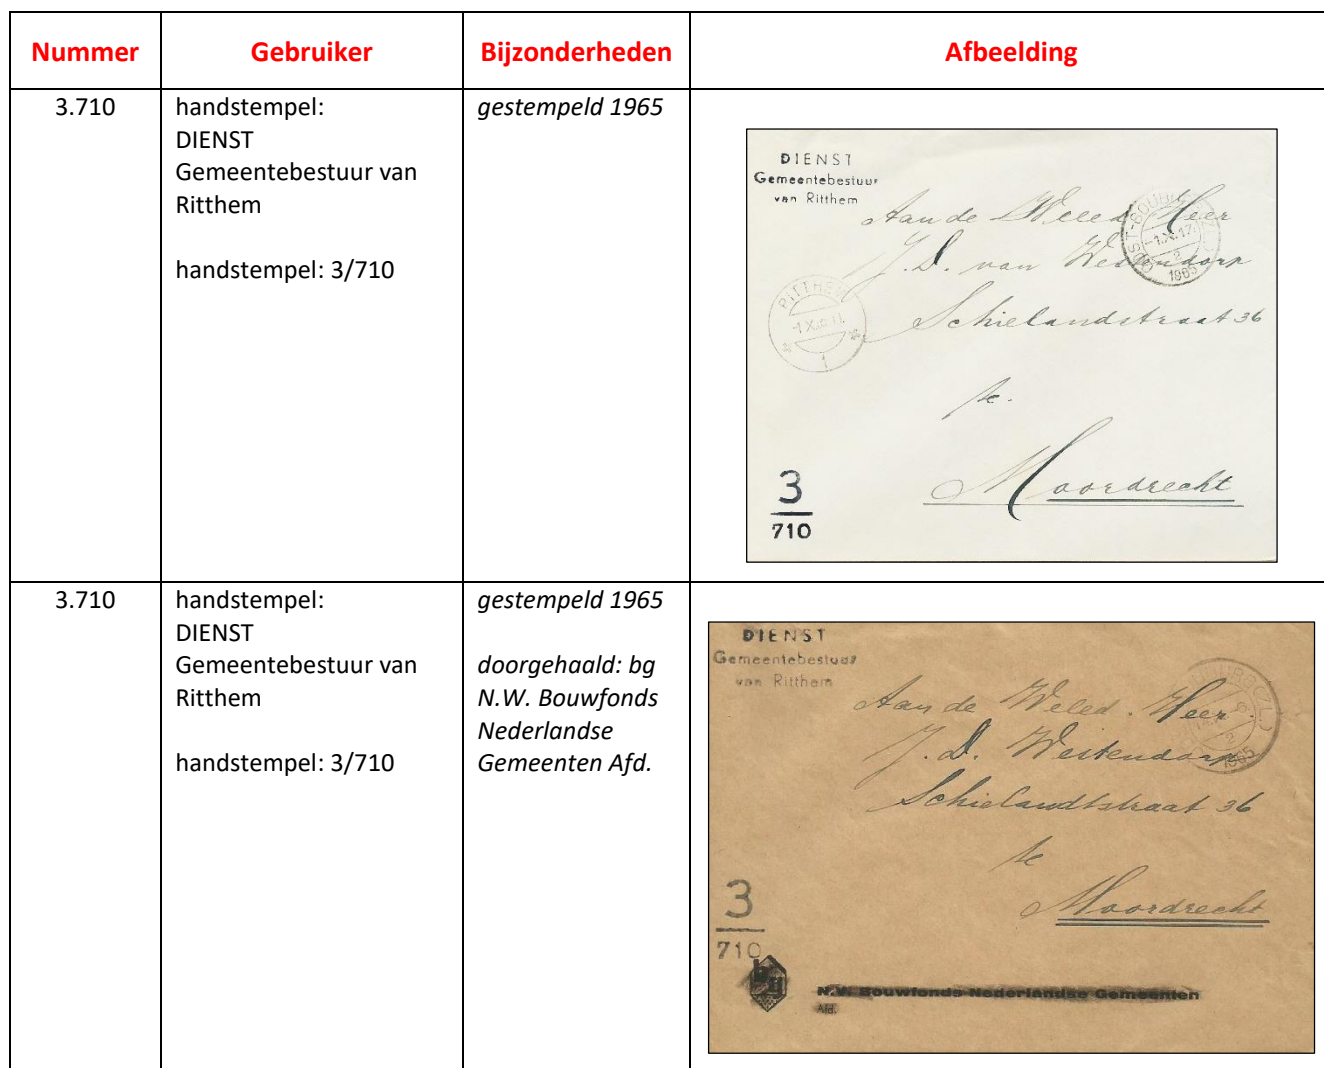 Nummer Gebruiker Bijzonderheden Afbeelding
3.710
handstempel:
DIENST
Gemeentebestuur van
Ritthem
handstempel: 3/710
gestempeld 1965
DIENST
Gemeentebestuur
van Ritthem
Aan de Weled. Heer
J. D. van Westendorp
Schielandstraat 36
te.
Moordrecht
RITTHEM
1
1965
3
710
3.710
handstempel:
DIENST
Gemeentebestuur van
Ritthem
handstempel: 3/710
gestempeld 1965
doorgehaald: bg
N.W. Bouwfonds
Nederlandse
Gemeenten Afd.
DIENST
Gemeentebestuur
van Ritthem
Aan de Weled. Heer
J. D. Westendorp
Schielandtstraat 36
te
Moordrecht
1965
3
710
N.V. Bouwfonds Nederlandse Gemeenten
Afd.